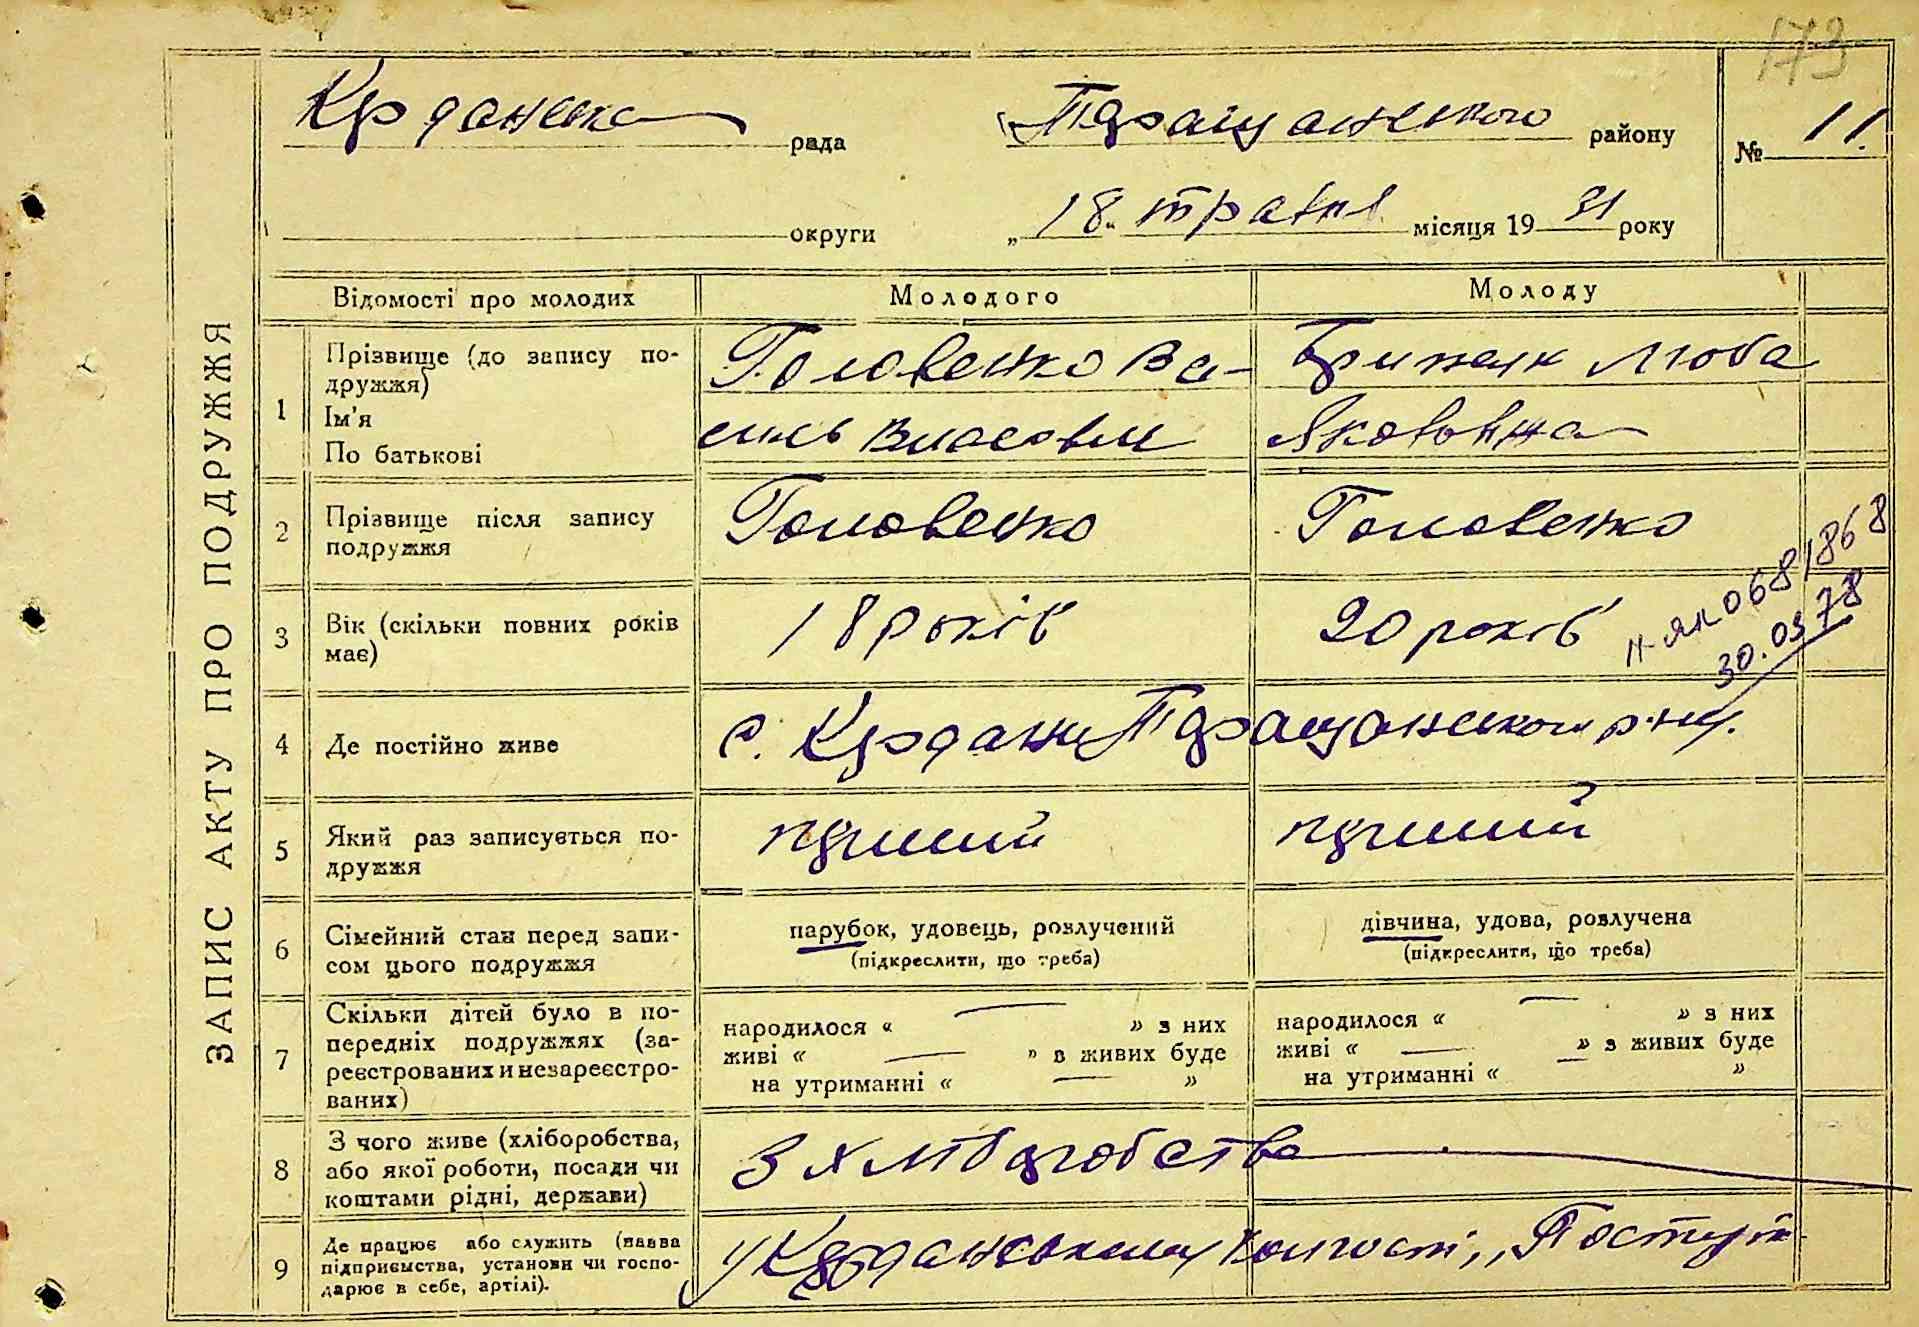 173
Крданська рада Таращанського району № 11.
округи „18“ травня місяця 1931 року
ЗАПИС АКТУ ПРО ПОДРУЖЖЯ
Відомості про молодих Молодого Молоду
1 Прізвище (до запису по-
дружжя)
Ім'я
По батькові
Головенко Ва-
силь Власович
Люба
Яковівна
2 Прізвище після запису
подружжя
Головенко Головенко
3 Вік (скільки повних років
має)
18 років 20 років
0681868
30.03 78
4 Де постійно живе с. Крдани Таращанського р-ну.
5 Який раз записується по-
дружжя
перший перший
6 Сімейний стан перед запи-
сом цього подружжя
парубок, удовець, розлучений
(підкреслити, що треба)
дівчина, удова, розлучена
(підкреслити, що треба)
7 Скільки дітей було в по-
передніх подружжях (за-
реєстрованих и незареєстро-
ваних)
народилося « — » з них
живі « — » в живих буде
на утриманні « — »
народилося « — » з них
живі « — » з живих буде
на утриманні « — »
8 З чого живе (хліборобства,
або якої роботи, посади чи
коштами рідні, держави)
З хліборобства
9 Де працює або служить (назва
підприємства, установи чи госпо-
дарює в себе, артілі).
у Крданському колгоспі